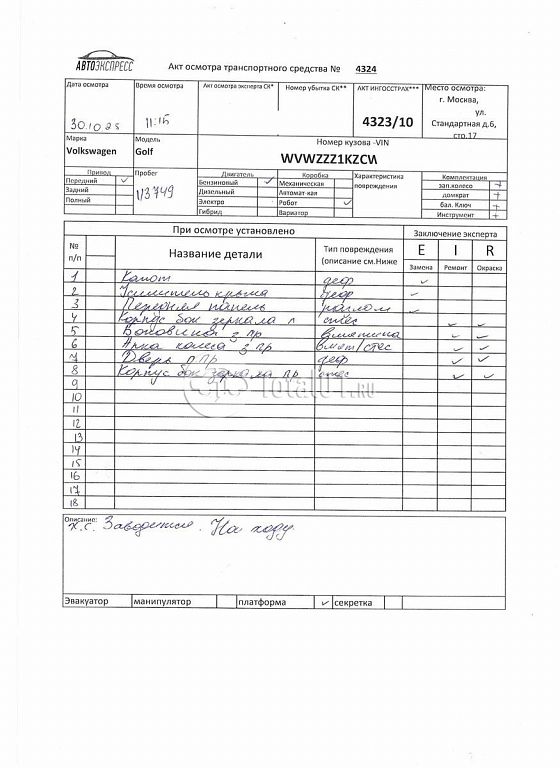 АВТОЭКСПРЕСС
Акт осмотра транспортного средства № 4324
Дата осмотра Время осмотра Акт осмотра эксперта СК* Номер убытка СК** АКТ ИНГОССТРАХ*** Место осмотра:
г. Москва,
ул.
30.10.25 11:15 4323/10 Стандартная д.6,
стр.17
Марка Модель Номер кузова -VIN
Volkswagen Golf WVWZZZ1KZCW
Привод Пробег Двигатель Коробка Характеристика повреждения Комплектация
Передний ✓ 113749 Бензиновый ✓ Механическая зап.колесо +
Задний Дизельный Автомат-кая домкрат +
Полный Электро Робот ✓ бал. Ключ +
Гибрид Вариатор Инструмент +
При осмотре установлено Заключение эксперта
№ п/п Название детали Тип повреждения (описание см.Ниже E I R
Замена Ремонт Окраска
1 Капот деф ✓
2 Усилитель крыла деф ✓
3 Передняя панель разлом ✓
4 Корпус бок зеркала л стес ✓ ✓
5 Боковина з пр вмятина ✓ ✓
6 Арка колеса з пр вмят/стес ✓ ✓
7 Дверь п пр деф ✓ ✓
8 Корпус бок зеркала пр стес ✓ ✓
9
10
11
12
13
14
15
16
17
18
Total01.ru
Описание:
х.с. Заводится. На ходу
Эвакуатор манипулятор платформа ✓ секретка